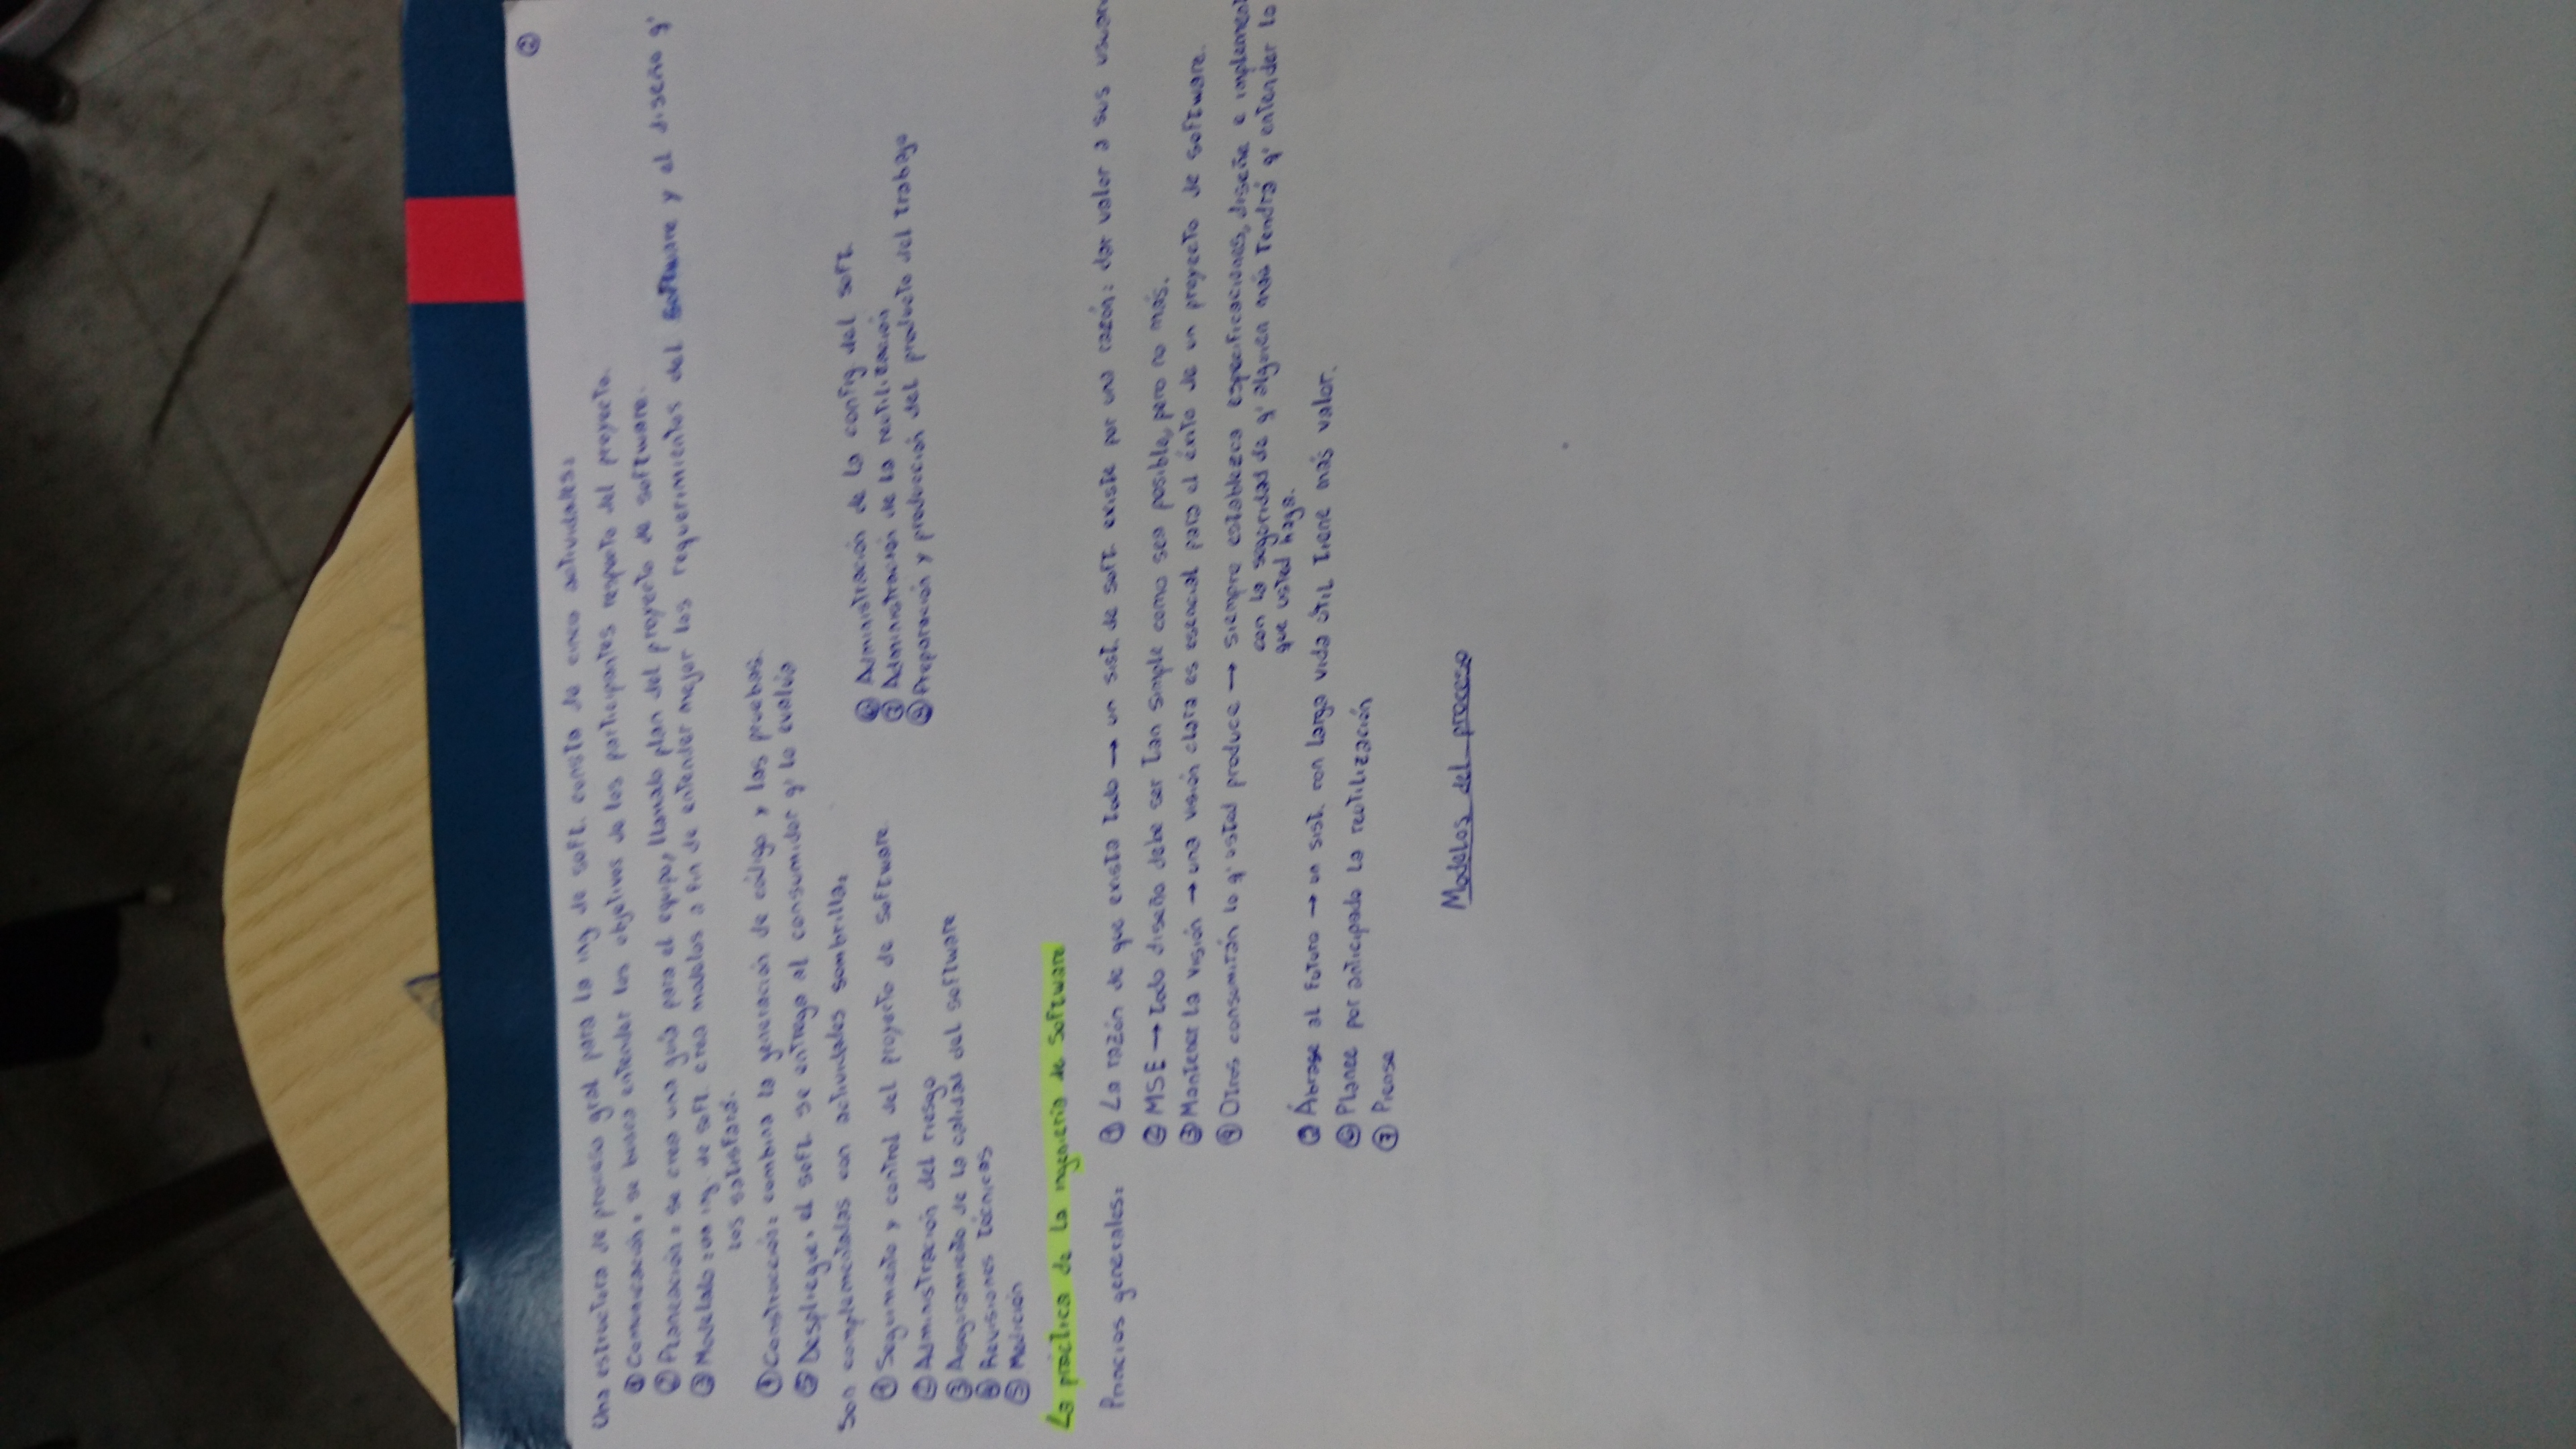 ②
Una estructura de proceso gral para la ing. de soft. consta de cinco actividades:
① Comunicación: se busca entender los objetivos de los participantes respecto del proyecto.
② Planeación: se crea una guía para el equipo, llamado plan del proyecto de software.
③ Modelado: un ing. de soft. crea modelos a fin de entender mejor los requerimientos del software y el diseño q'
los satisfará.
④ Construcción: combina la generación de código y las pruebas.
⑤ Despliegue: el soft. se entrega al consumidor q' lo evalúa
Son complementadas con actividades sombrilla:
① Seguimiento y control del proyecto de software
② Administración del riesgo
③ Aseguramiento de la calidad del software
④ Revisiones técnicas
⑤ Medición
⑥ Administración de la config. del soft.
⑦ Administración de la reutilización
⑧ Preparación y producción del producto del trabajo
La práctica de la ingeniería de Software
Princios generales:
① La razón de que exista todo → un sist. de soft. existe por una razón: dar valor a sus usuar
② MSE → todo diseño debe ser tan simple como sea posible, pero no más.
③ Mantener la visión → una visión clara es esencial para el éxito de un proyecto de software.
④ Otros consumirán lo q' usted produce → siempre establezca especificaciones, diseñe e implement
con la seguridad de q' alguien más tendrá q' entender lo
que usted haga.
⑤ Ábrase al futuro → un sist. con larga vida útil tiene más valor.
⑥ Planee por anticipado la reutilización
⑦ Piense
Modelos del proceso